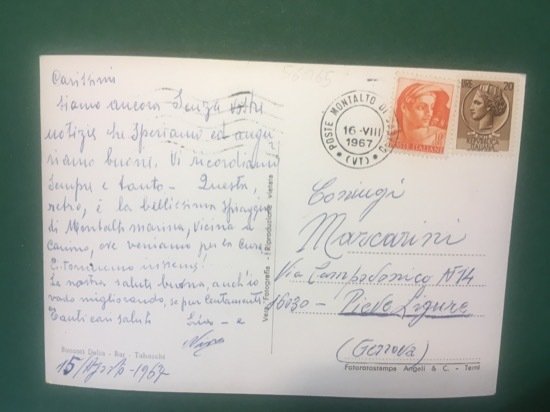 Carissimi
siamo ancora senza vostre
notizie che speriamo ed augu
riamo buone. Vi ricordiamo
sempre e tanto - Questa,
retro, è la bellissima spiaggia
di Montalto marina, vicina a
ove veniamo per la cura
E torneremo insieme!
Le nostra salute buona, anch'io
vado migliorando, se pur lentamente
Tanti cari saluti
15/Agosto-1967
Bar - Tabacchi
Vera Fotografia - Riproduzione vietata
56965
POSTE MONTALTO DI
16-VIII
1967
(VT)
10
POSTE ITALIANE
LIRE 20
REPUBBLICA
ITALIANA
Coniugi
Marcarini
Via Campodonico N 14
16030 - Pieve Ligure
(Genova)
Fotocrostampa Angeli & C. - Terni